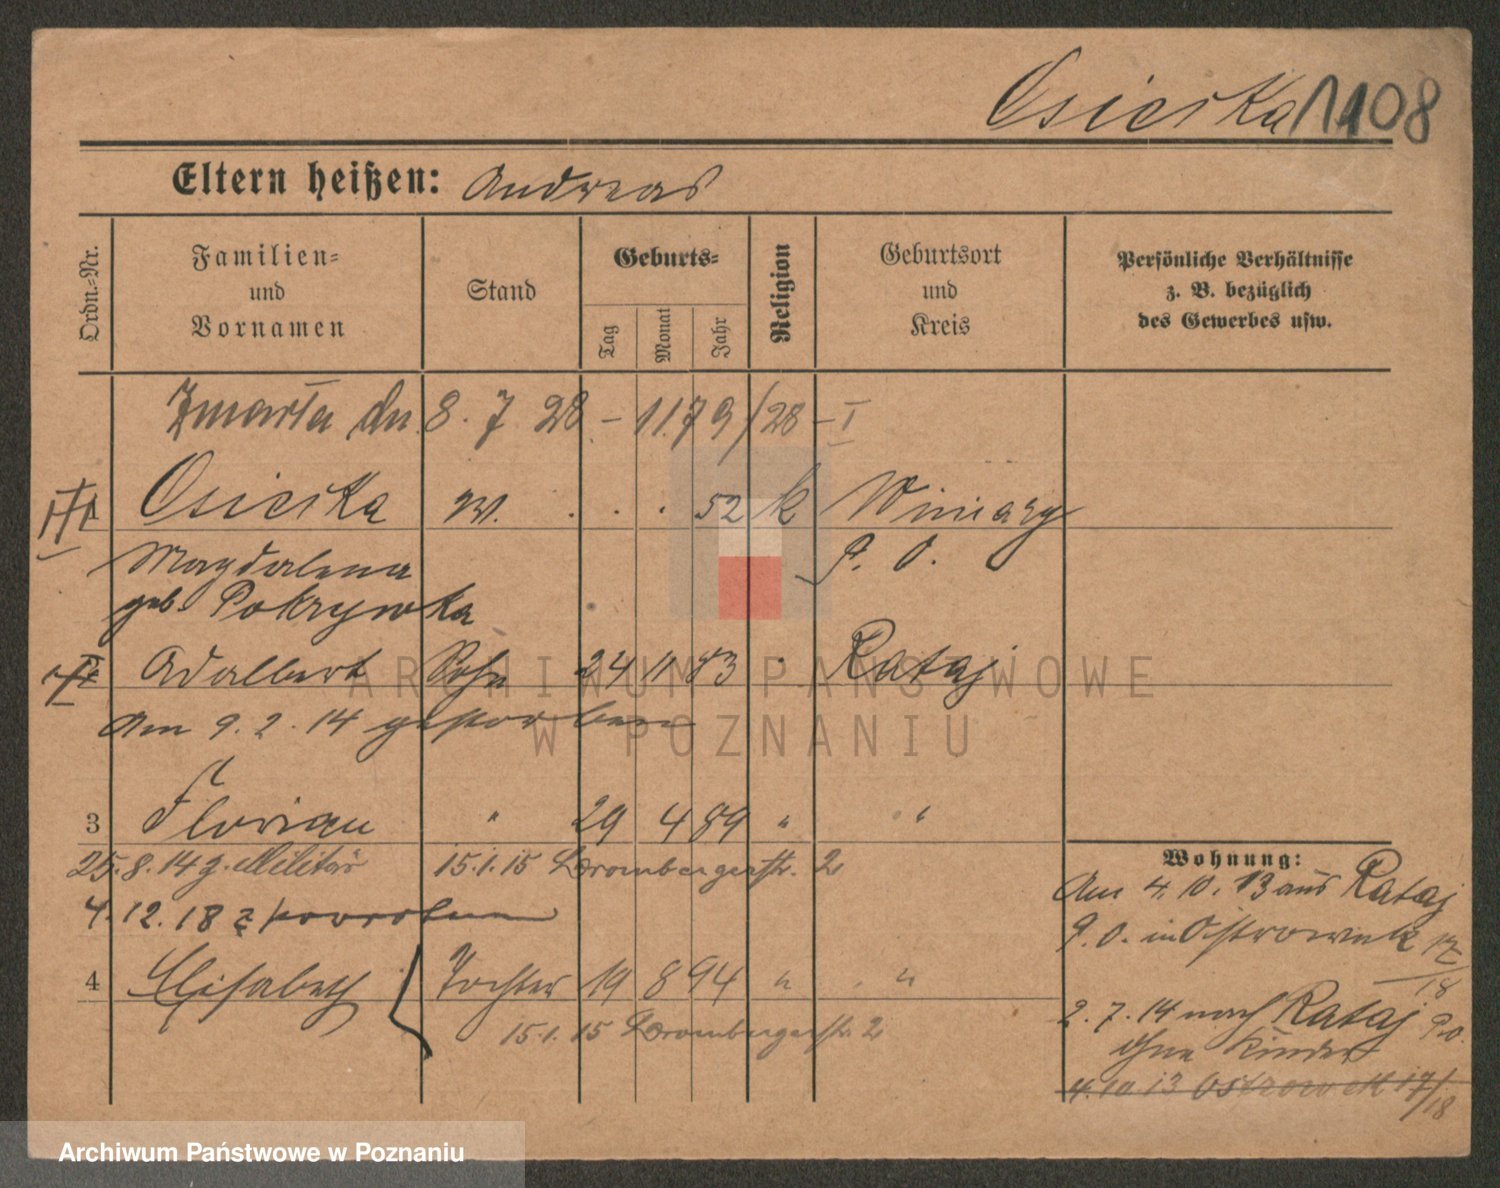 Osieska 1108
Eltern heißen: Andreas
Ordn.-Nr.
Familien- und Vornamen
Stand
Geburts-
Tag
Monat
Jahr
Religion
Geburtsort und Kreis
Persönliche Verhältnisse z. B. bezüglich des Gewerbes usw.
Zmarła dn. 8. 7 28 - 1179/28 - I
Osieska W. . . . 52 k Winiary
Magdalena P. O.
geb. Pokrywka
Adalbert Sohn 24 11 83 " Rataj
Am 9. 2. 14 gestorben
3 Florian " 29 4 89 " "
25. 8. 14 z. Militär 15.1.15 Brombergerstr. 2
4. 12. 18 z powrotem
4 Elisabeth Tochter 19 8 94 " "
15.1.15 Brombergerstr. 2
Wohnung:
Am 4. 10. 13 aus Rataj
P. O. in Ostrowek 17/18
2. 7. 14 nach Rataj P.O.
ohne Kinder
4. 10 13 Ostrowek 17/18
ARCHIWUM PAŃSTWOWE
W POZNANIU
Archiwum Państwowe w Poznaniu